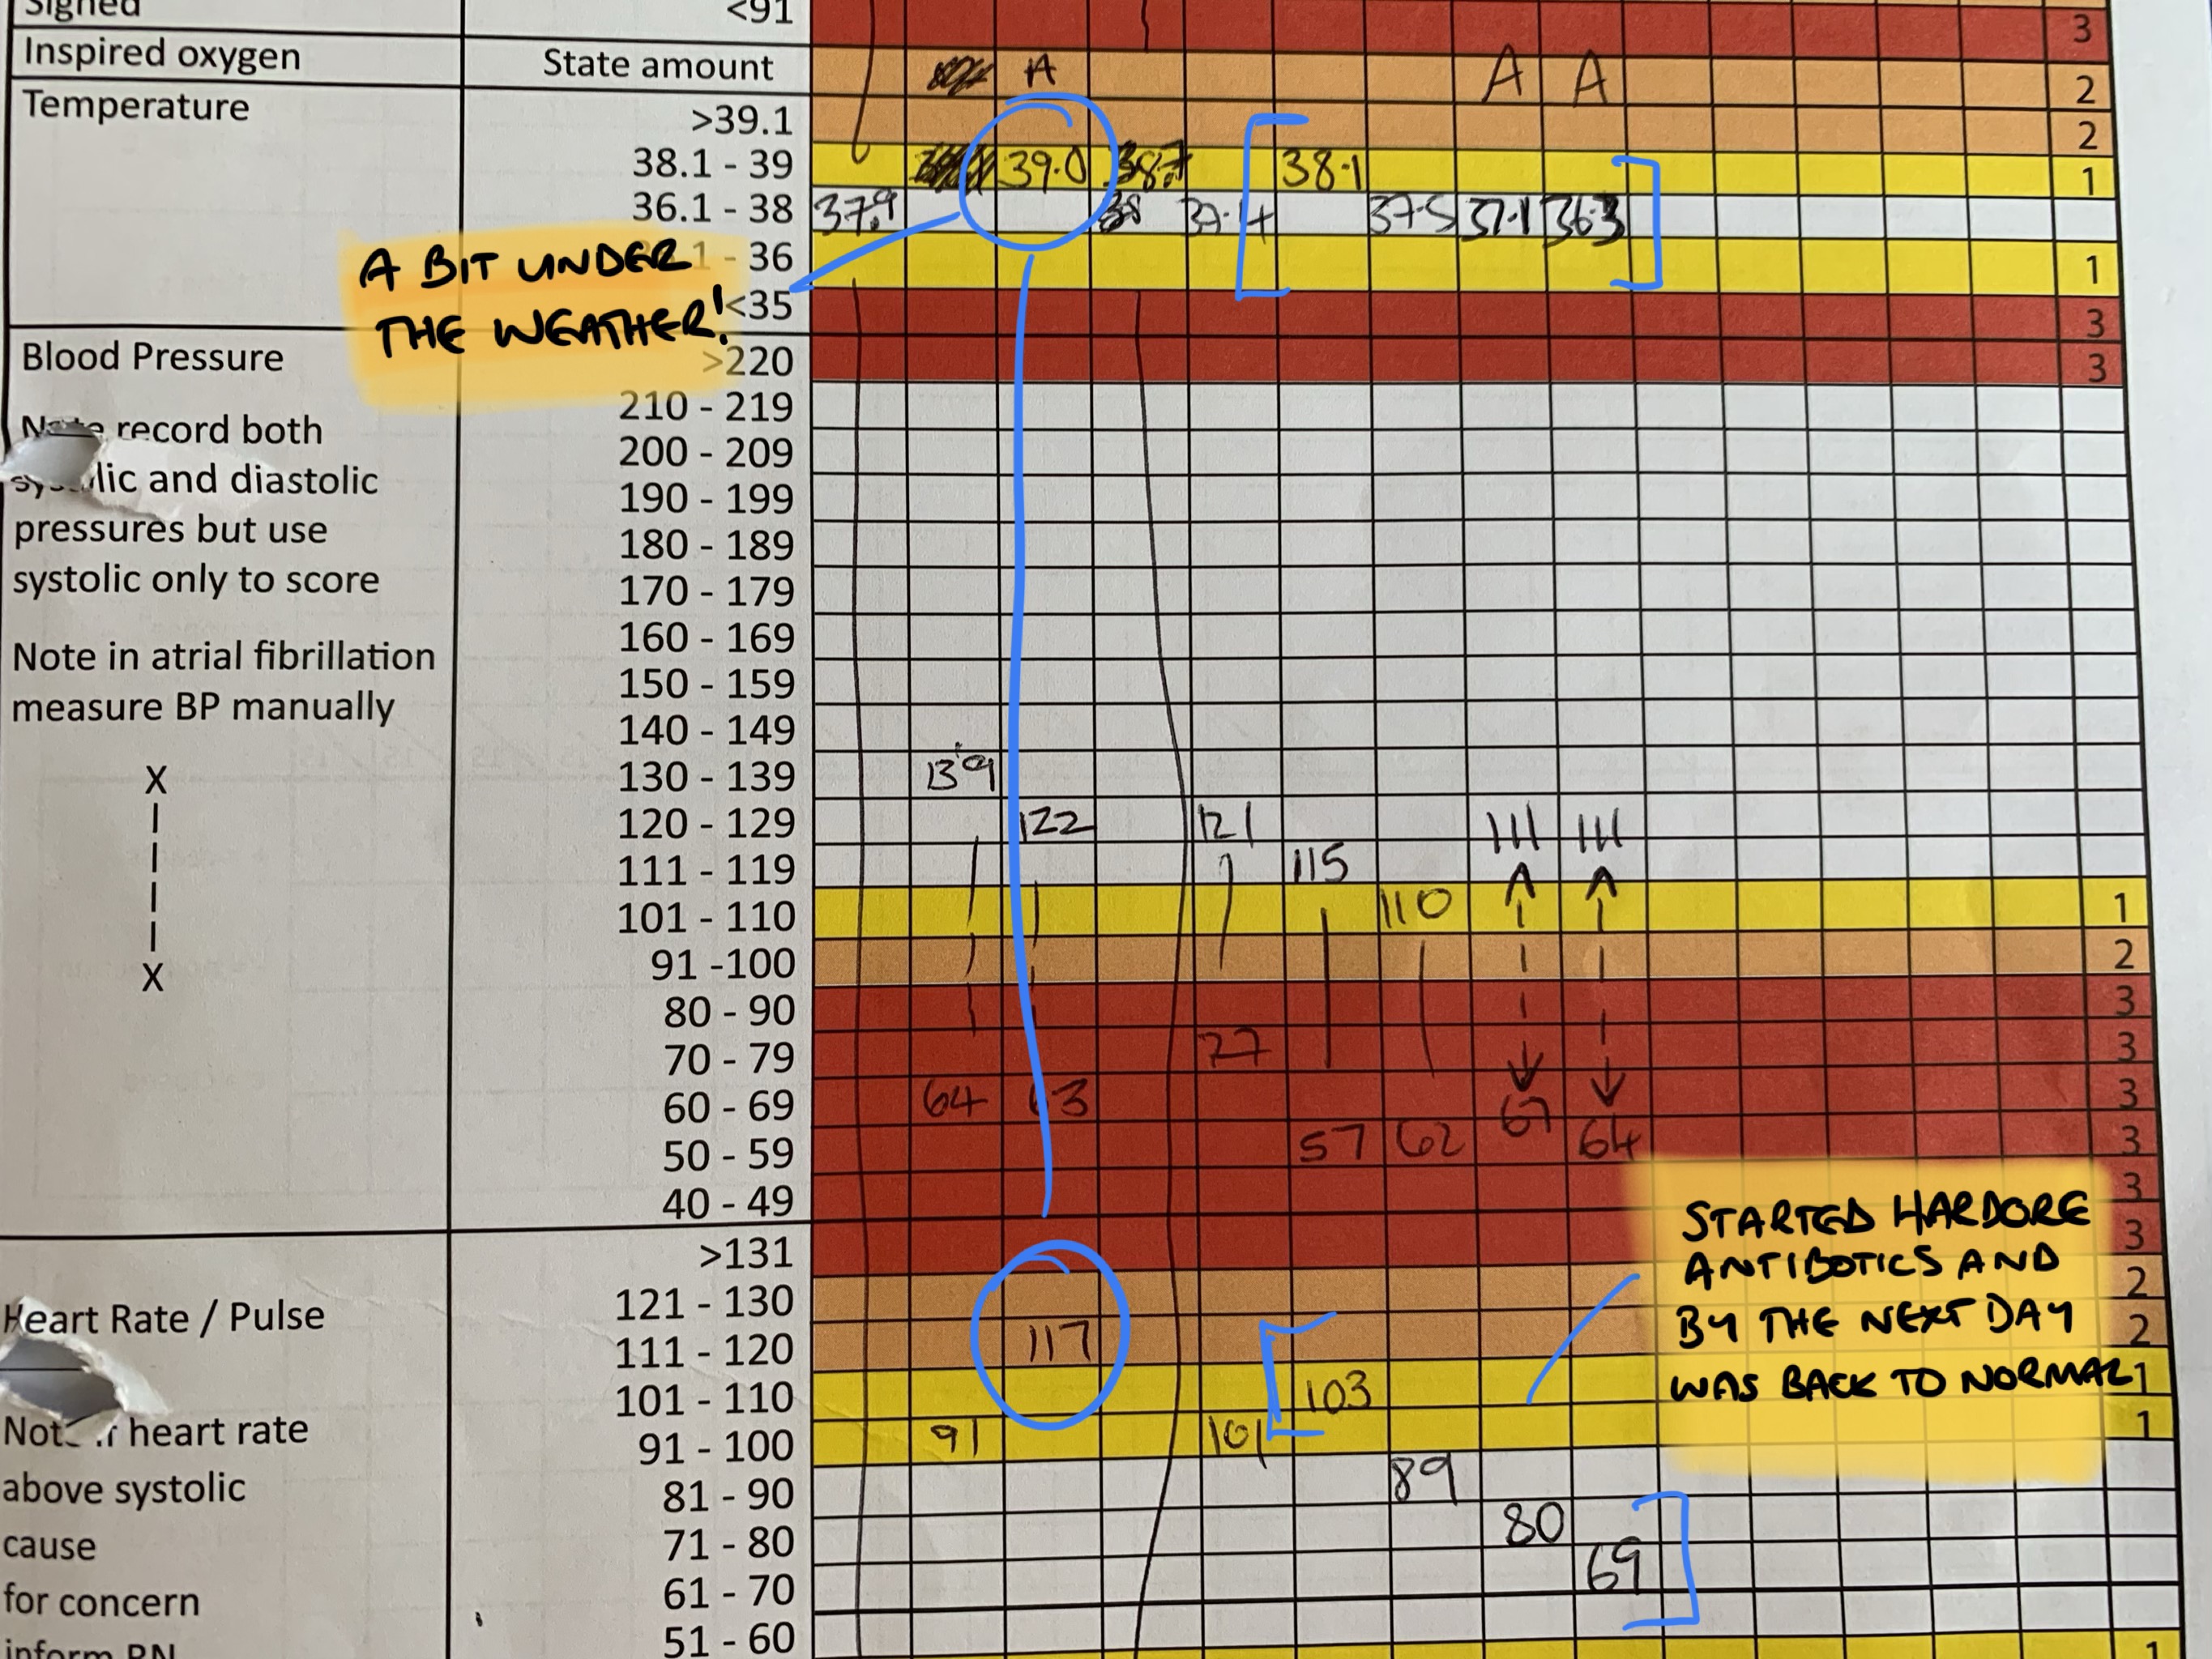 Signed <91 3
Inspired oxygen State amount A A A 2
Temperature >39.1 2
38.1 - 39 39.0 38.7 38.1 1
36.1 - 38 37.9 38 37.4 37.5 37.1 36.3
A BIT UNDER 1 - 36 1
THE WEATHER! <35 3
Blood Pressure >220 3
210 - 219
record both 200 - 209
lic and diastolic 190 - 199
pressures but use 180 - 189
systolic only to score 170 - 179
Note in atrial fibrillation 160 - 169
measure BP manually 150 - 159
140 - 149
X 130 - 139 139
120 - 129 122 121 111 111
111 - 119 115
101 - 110 110 1
X 91 -100 2
80 - 90 3
70 - 79 77 3
60 - 69 64 63 67 3
50 - 59 57 62 64 3
40 - 49 3
>131 3
Heart Rate / Pulse 121 - 130 2
111 - 120 117 2
101 - 110 103 1
heart rate 91 - 100 91 101 1
above systolic 81 - 90 89
cause 71 - 80 80
for concern 61 - 70 69
inform RN 51 - 60 1
STARTED HARDORE
ANTIBOTICS AND
BY THE NEXT DAY
WAS BACK TO NORMAL